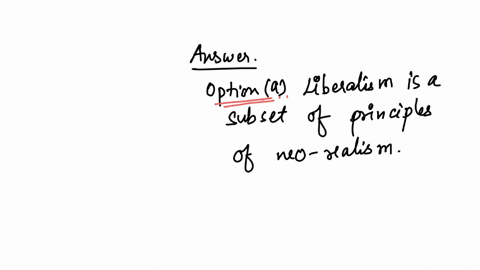 Answer.
Option (a). Liberalism is a
subset of principles
of neo-realism.